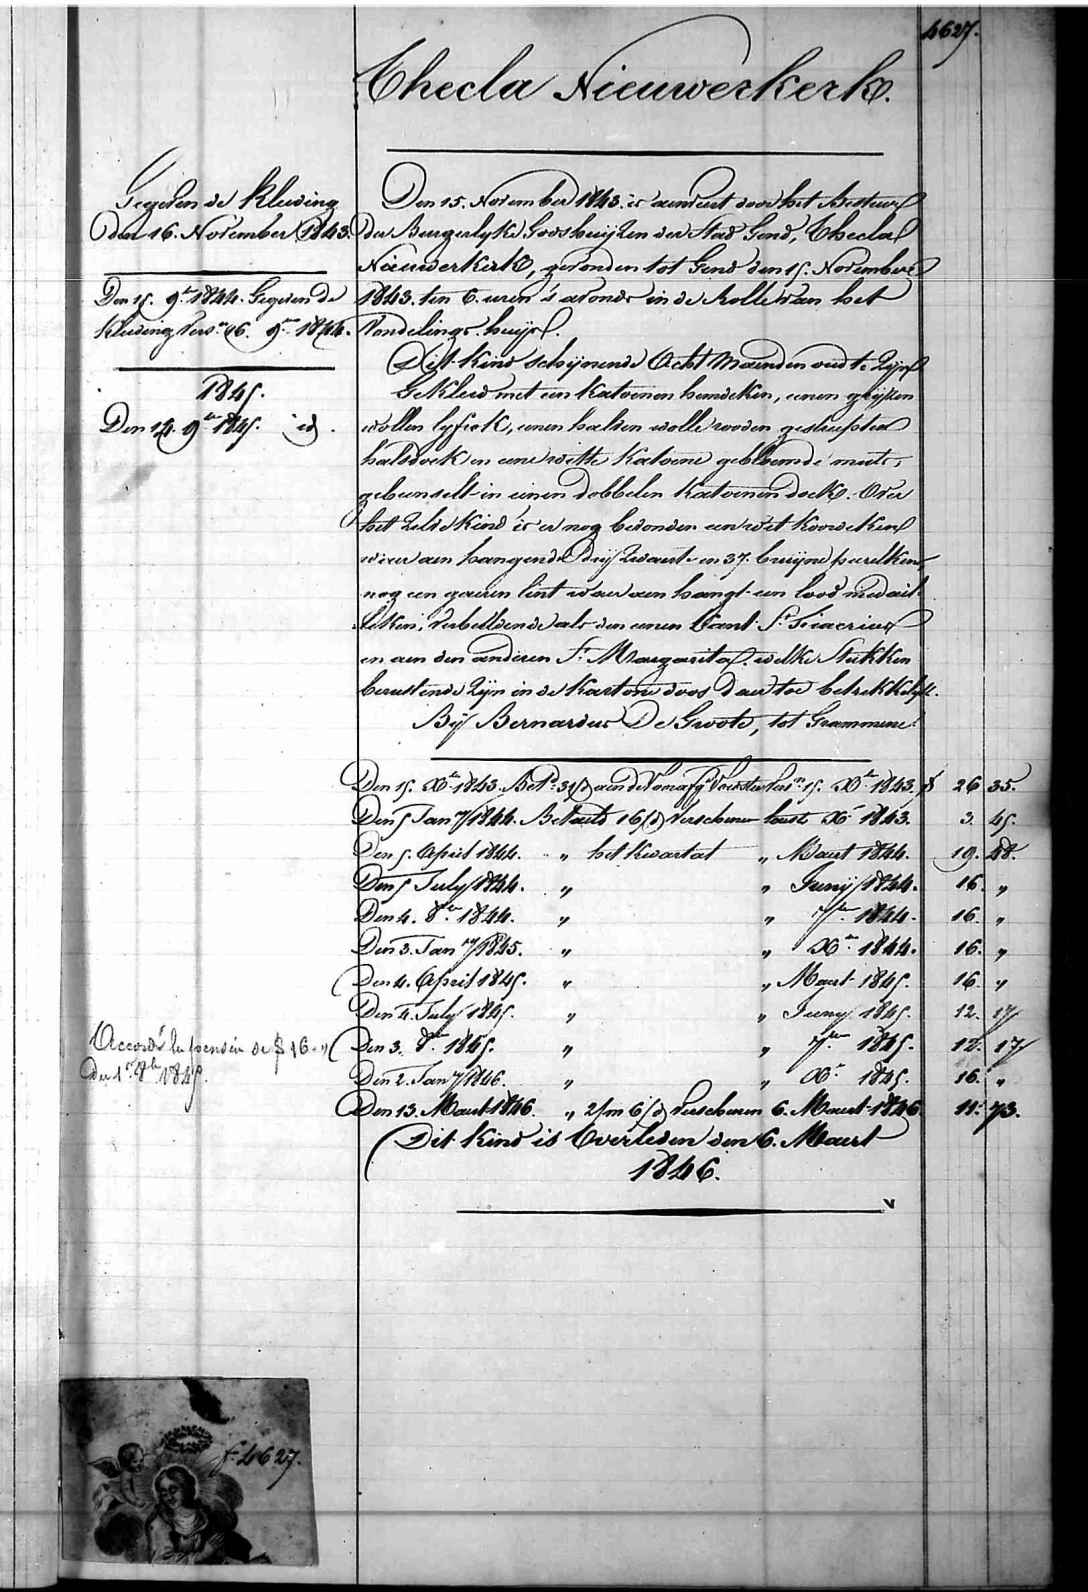 4627.
Thecla Nieuwerkerk.
Gegeven de kleeding
den 16. November 1843.
Den 15. 9.er 1844. Gegeven de
kleeding vers.n 16. 9.er 1844.
1845.
Den 14. 9.er 1845. id.
Den 15. November 1843. is aenveert door het Bestuur
der Burgerlyke Godshuijzen der Stad Gend, Thecla
Nieuwerkerk, gevonden tot Gend den 15. November
1843. ten 6. uren 's avonds in de Rolle van het
Vondelings huijs.
Dit kind schijnende Acht Maenden oud te Zijn
Gekleed met een Katoenen hemdeken, eenen grijsen
wollen lyfrok, eenen halven wolle rooden gestreepten
halsdoek en eene witte Katoene gebloemde muts,
gebunselt in eenen dobbelen Katoenen doek. Over
het Zelve Kind is er nog bevonden een wit koordeken
waer aen hangende drij Zwarte en 37. bruijne peirelkens,
nog een gauwen lint waer aen hangt een lood medail-
leken, verbeeldende als den eenen kant S.t Fiacrius
en aen den anderen S.t Margarita. welke Stukken
berustende Zijn in de Kartone doos daer toe betrekkelyk.
Bij Bernardus De Groote, tot Grammene.
Den 15. X.er 1843. Bet.d 31/d aen de Voorster vers.n 15. X.er 1843. f 26 35.
Den 5 Jan.ry 1844. Betaeld 16/d Verschenen X.er 1843. 3. 45.
Den 5. April 1844. " het kwartael " Maert 1844. 19. 48.
Den 5 July 1844. " " Junij 1844. 16. "
Den 4. 8.er 1844. " " 7.er 1844. 16. "
Den 3. Jan.ry 1845. " " X.er 1844. 16. "
Den 4. April 1845. " " Maert 1845. 16. "
Den 4. July 1845. " " Juny 1845. 12. 17
Accordé la pension de f 16 "
den 1.r 8.br 1845.
Den 3. 8.er 1845. " " 7.er 1845. 12. 17
Den 2. Jan.ry 1846. " " X.er 1845. 16. "
Den 13. Maert 1846. " 2/m 6/d Verschenen 6. Maert 1846. 11. 73.
Dit Kind is Overleden den 6. Maert
1846.
f.o 4627.